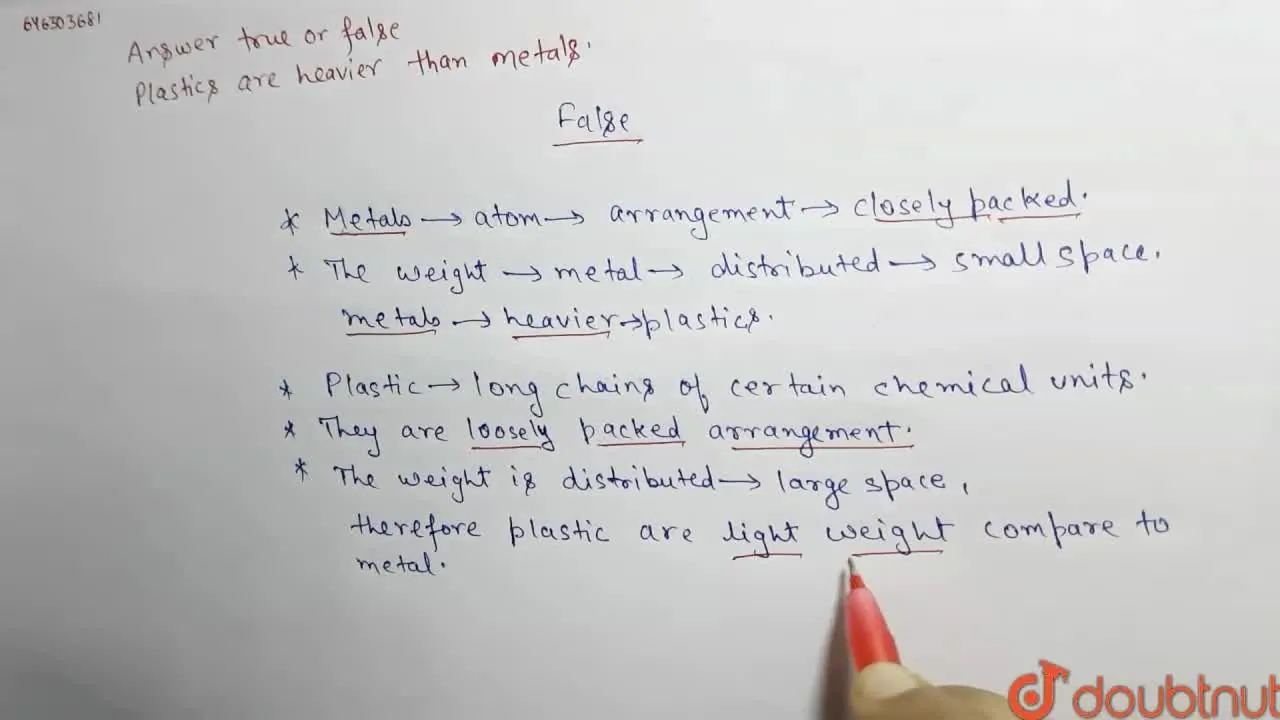 646303681
Answer true or false
Plastics are heavier than metals.
False
* Metals → atom → arrangement → closely packed.
* The weight → metal → distributed → small space,
metals → heavier → plastics.
* Plastic → long chains of certain chemical units.
* They are loosely packed arrangement.
* The weight is distributed → large space,
therefore plastic are light weight compare to
metal.
doubtnut